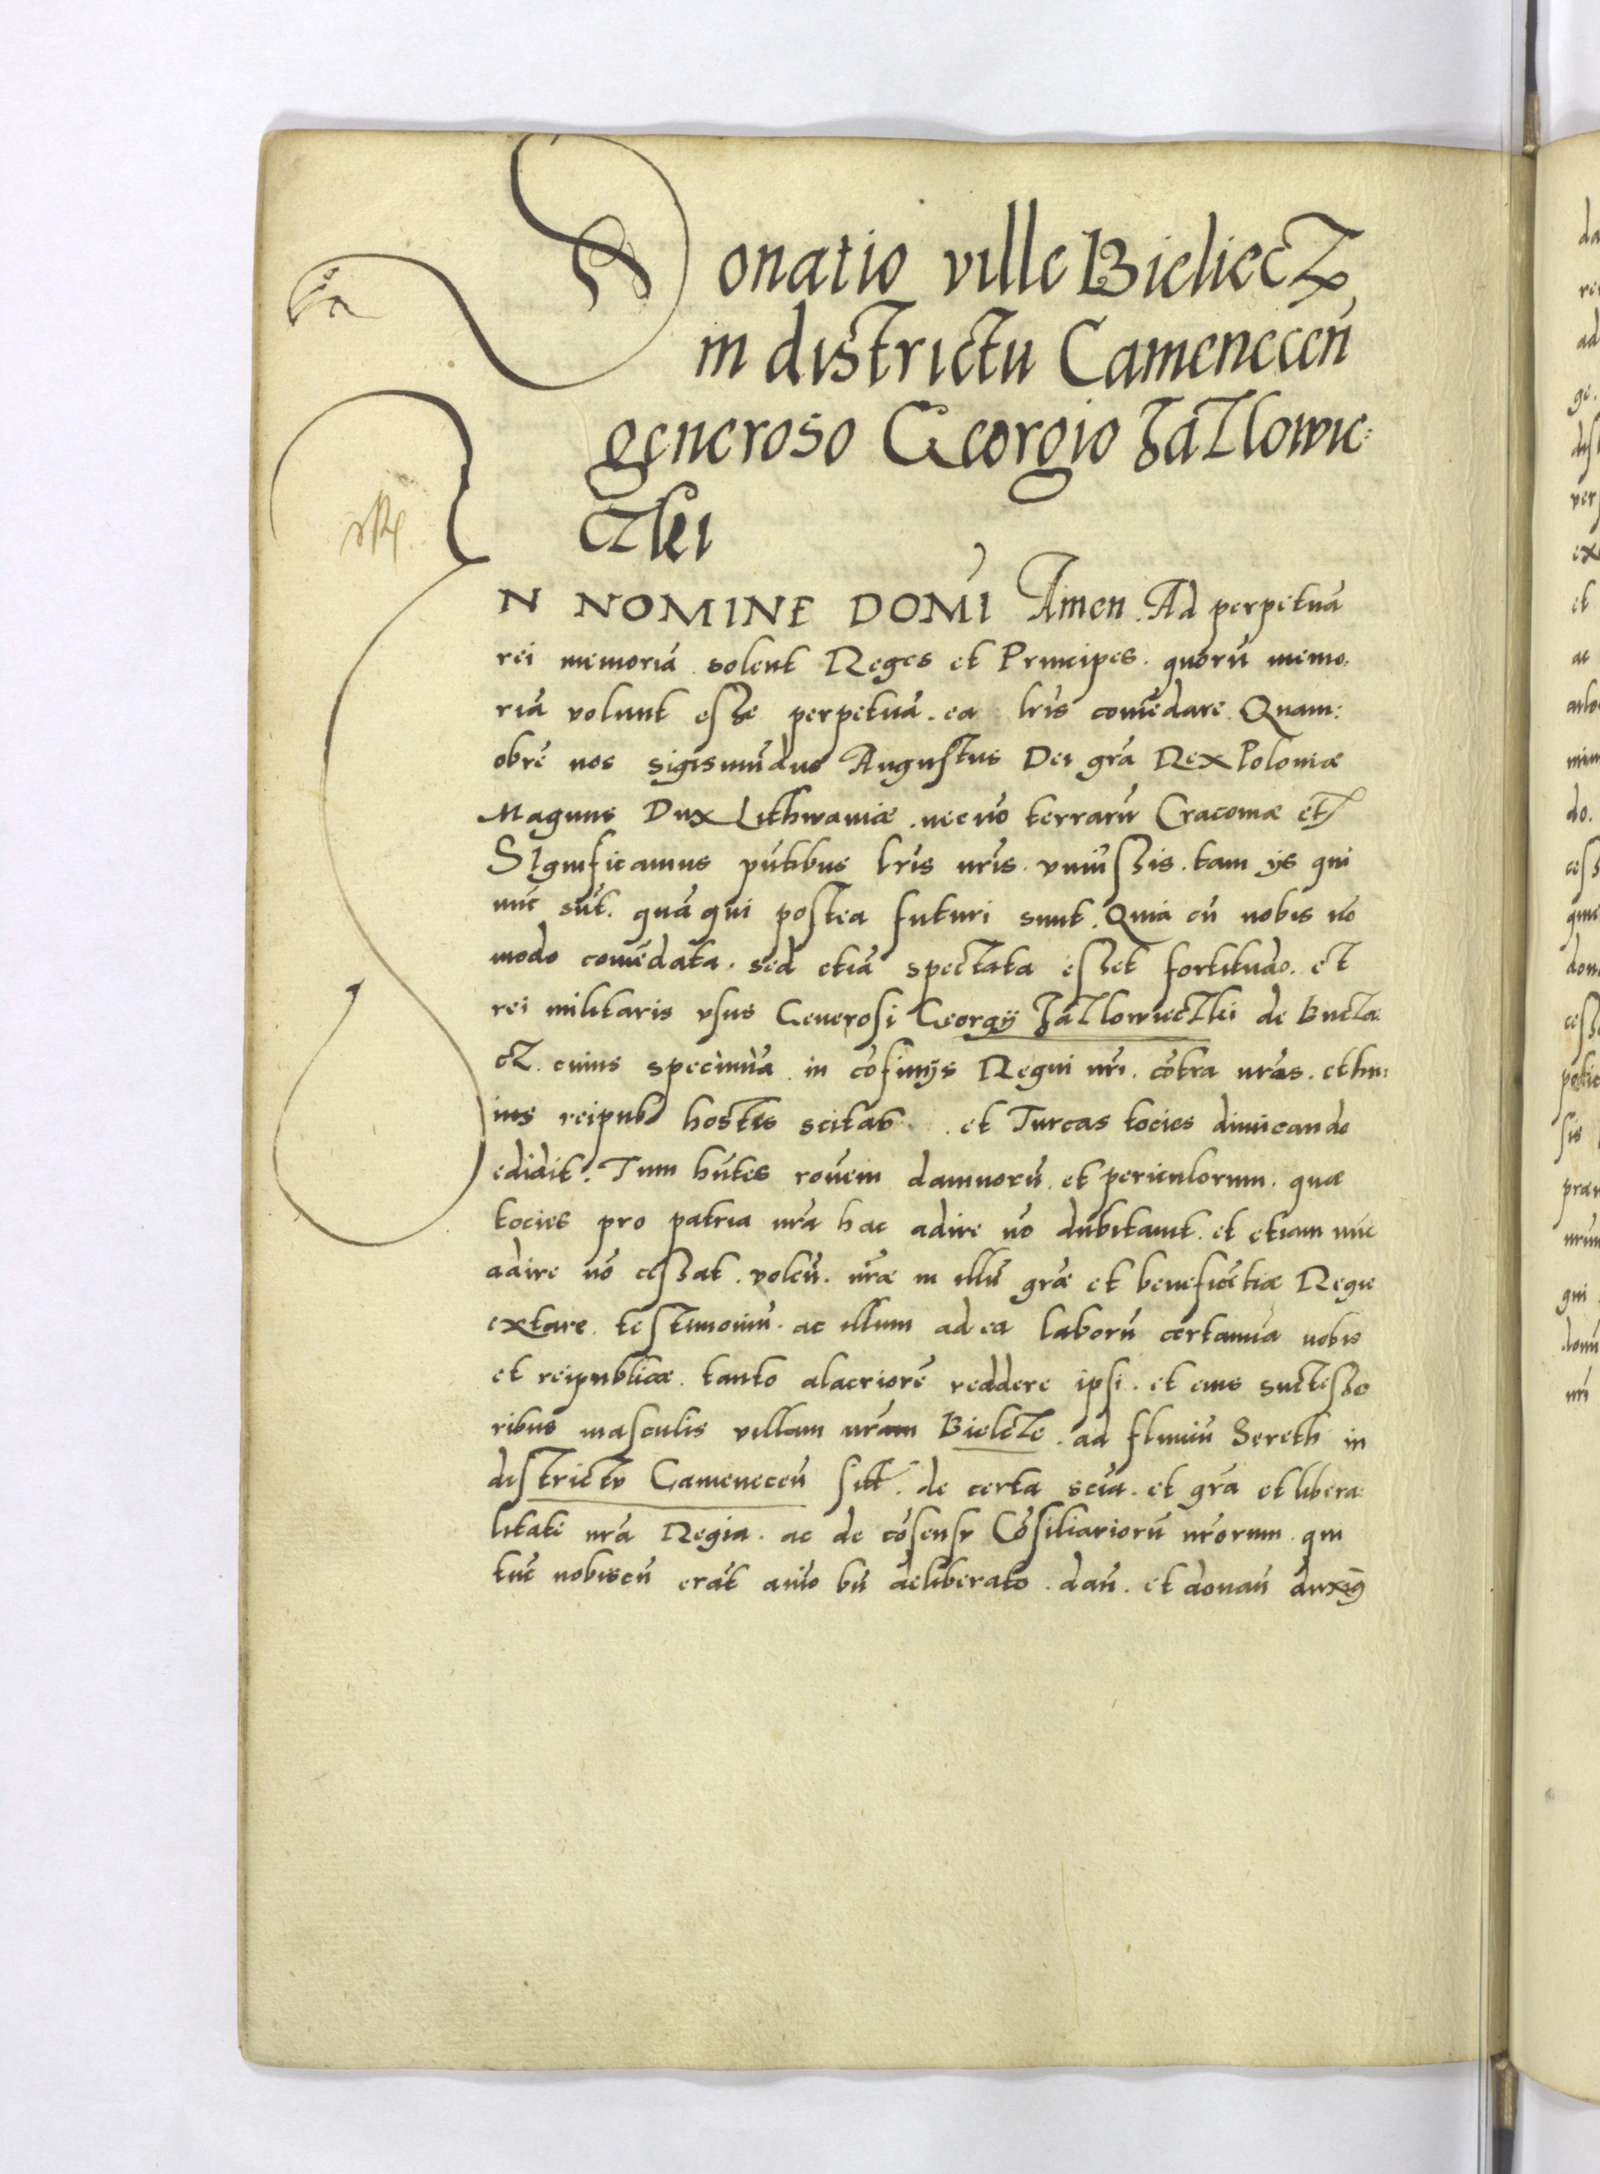 Donatio ville Bieliecz
in districtu Camenecen̄
generoso Georgio Jazlowie:
czkі
IN NOMINE DOMĪ Amen. Ad perpetuā
rei memoriā solent Reges et Principes. quorū memo:
riā volunt esse perpetuā. ea lr̄is com̄ēdare Quam:
obrē nos Sigismūdus Augustus Dei gr̄a Rex Poloniæ
Magnus Dux Lithwaniæ. necnō terrarū Cracoviæ etc
SIgnificamus pn̄tibus lr̄is nr̄is. vniūssis. tam ijs qui
nūc sūt. quā qui postea futuri sunt. Quia cū nobis nō
modo com̄ēdata. sed etiā spectata esset fortitudo. et
rei militaris vsus Generosi Georgij Jazlowieczki de Bucza:
cz. cuius specimīa in cōfinijs Regni nr̄i. cōtra nr̄as. et hu:
ius reipub hostes et Turcas tocies dimicando
edidit. Tum hn̄tes rōnem damnorū. et periculorum. quæ
tocies pro patria nr̄a hac adire nō dubitavit. et etiam nūc
adire nō cessat. volen̄. nr̄æ in illū gr̄æ et beneficētiæ Regie
extare. testimoniū. ac illum ad ea laborū certamīa nobis
et reipublicæ. tanto alacriorē reddere ipsi. et eius successo
ribus masculis villam nr̄am Bielcze. ad fluuiū Sereth in
districtu Camenecen̄ sitt. de certa scīa. et gr̄a et libera:
litate nr̄a Regia. ac de cōsensu Cōsiliariorū nr̄orum. qui
tūc nobiscū erāt aīo bn̄ deliberato. dan̄. et donan̄ duxim9